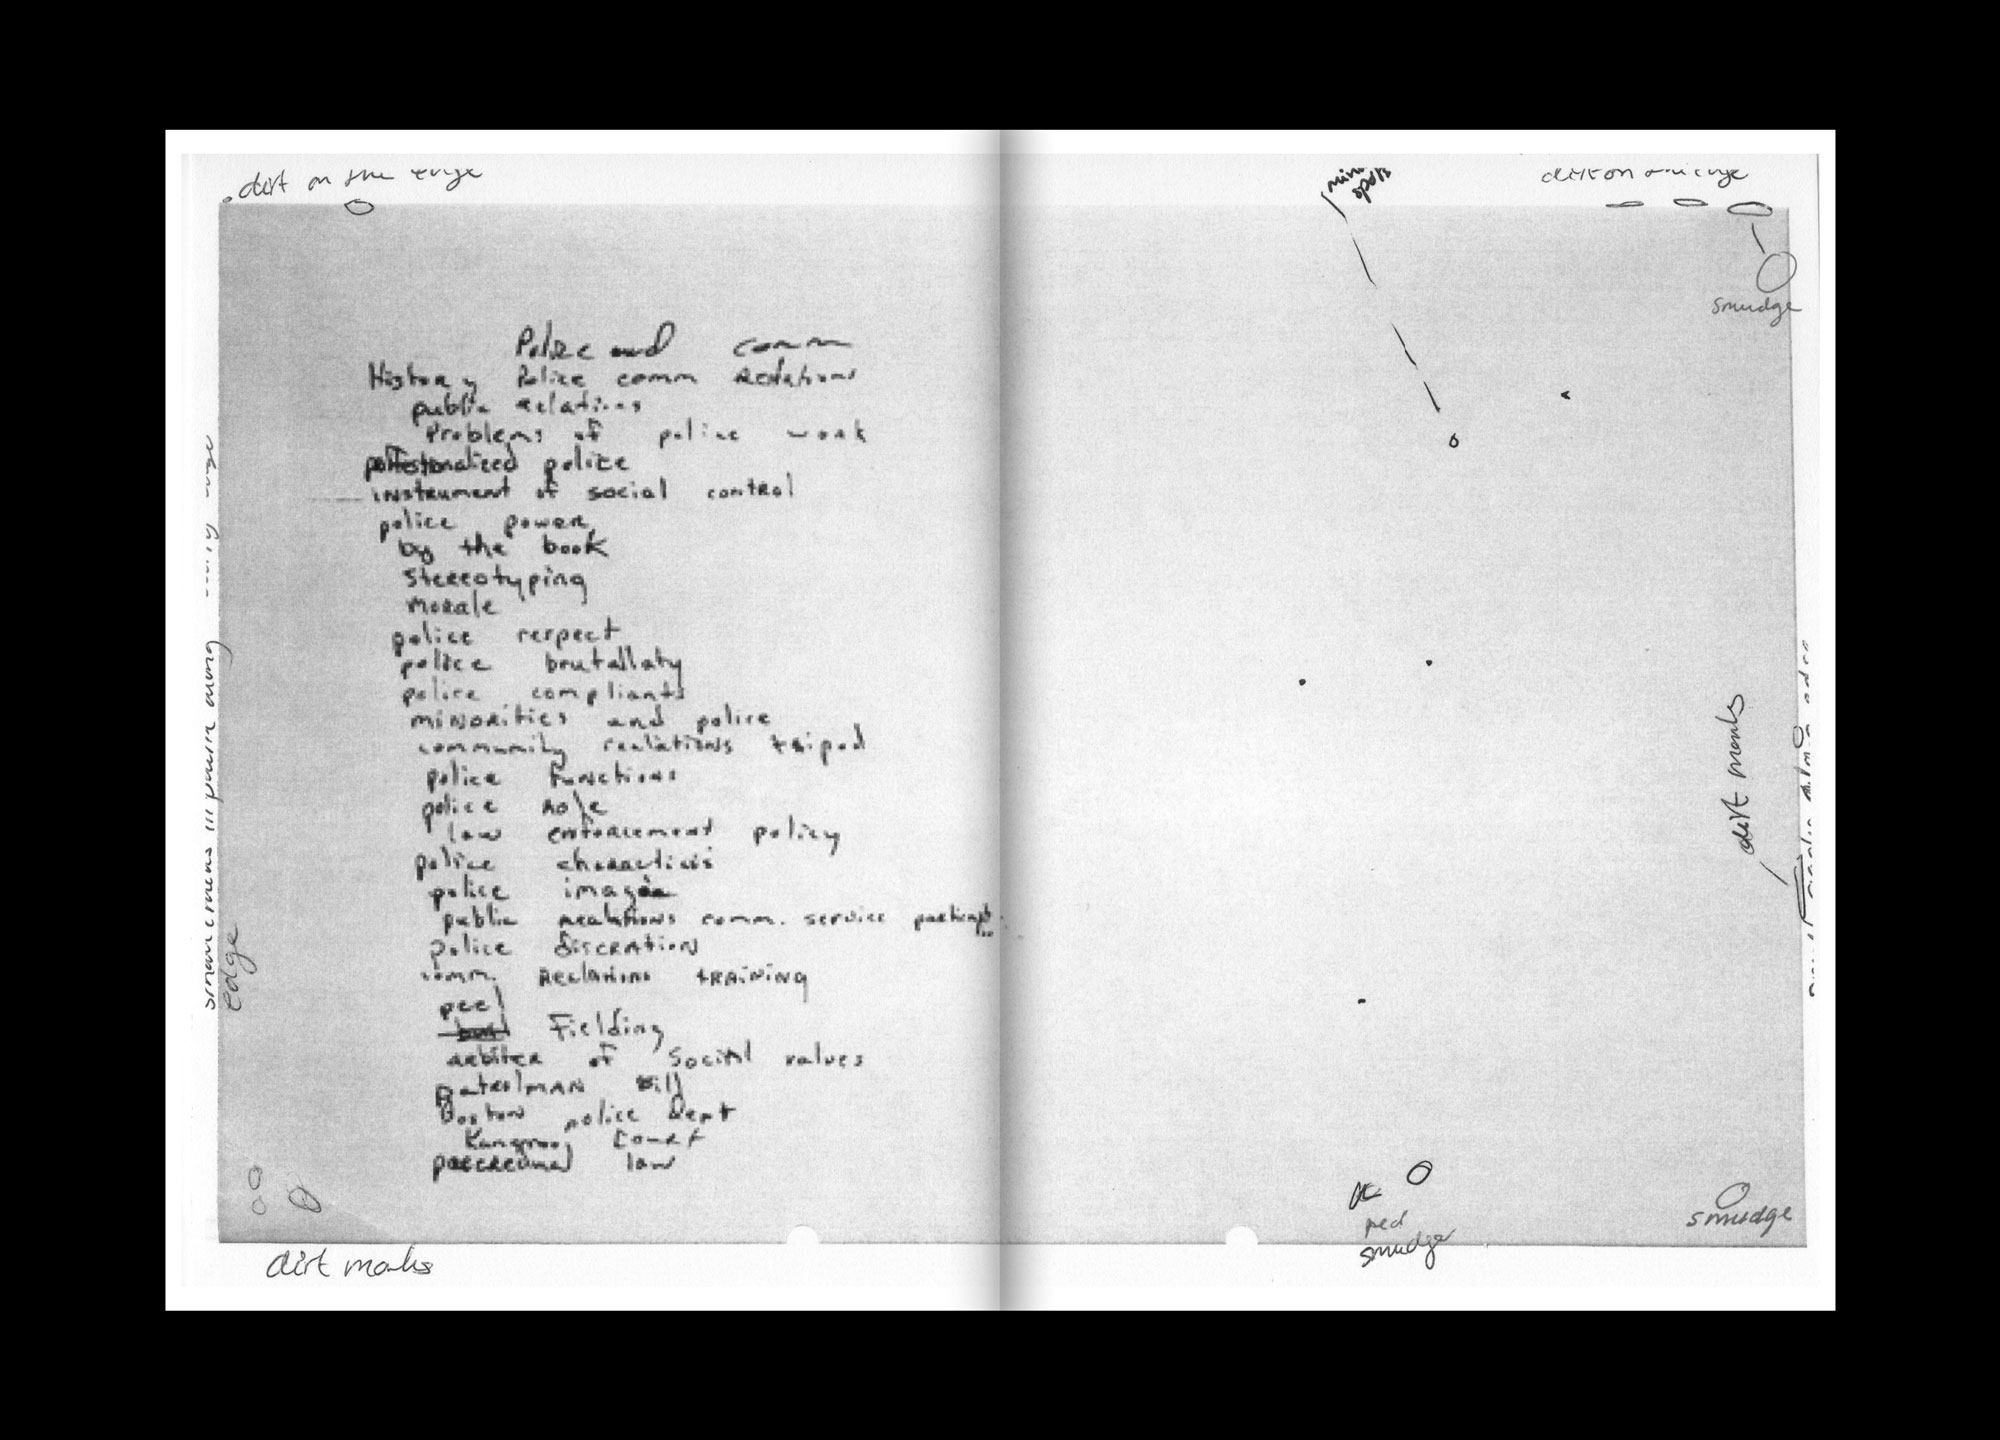 dirt on the edge
Police and comm
History Police comm Relations
public relations
Problems of police work
professionalized police
instrument of social control
police power
by the book
stereotyping
morale
police respect
police brutallaty
police compliants
minorities and police
community realations tripod
police functions
police role
law enforcement policy
police
police image
public realations comm. service
police discration
comm. Realations training
peel
Fielding
arbiter of Social values
patrolman
Boston police Dept
Kangroo Court
law
edge
dirt marks
mini spots
dirt on
smudge
dirt marks
red
smudge
smudge